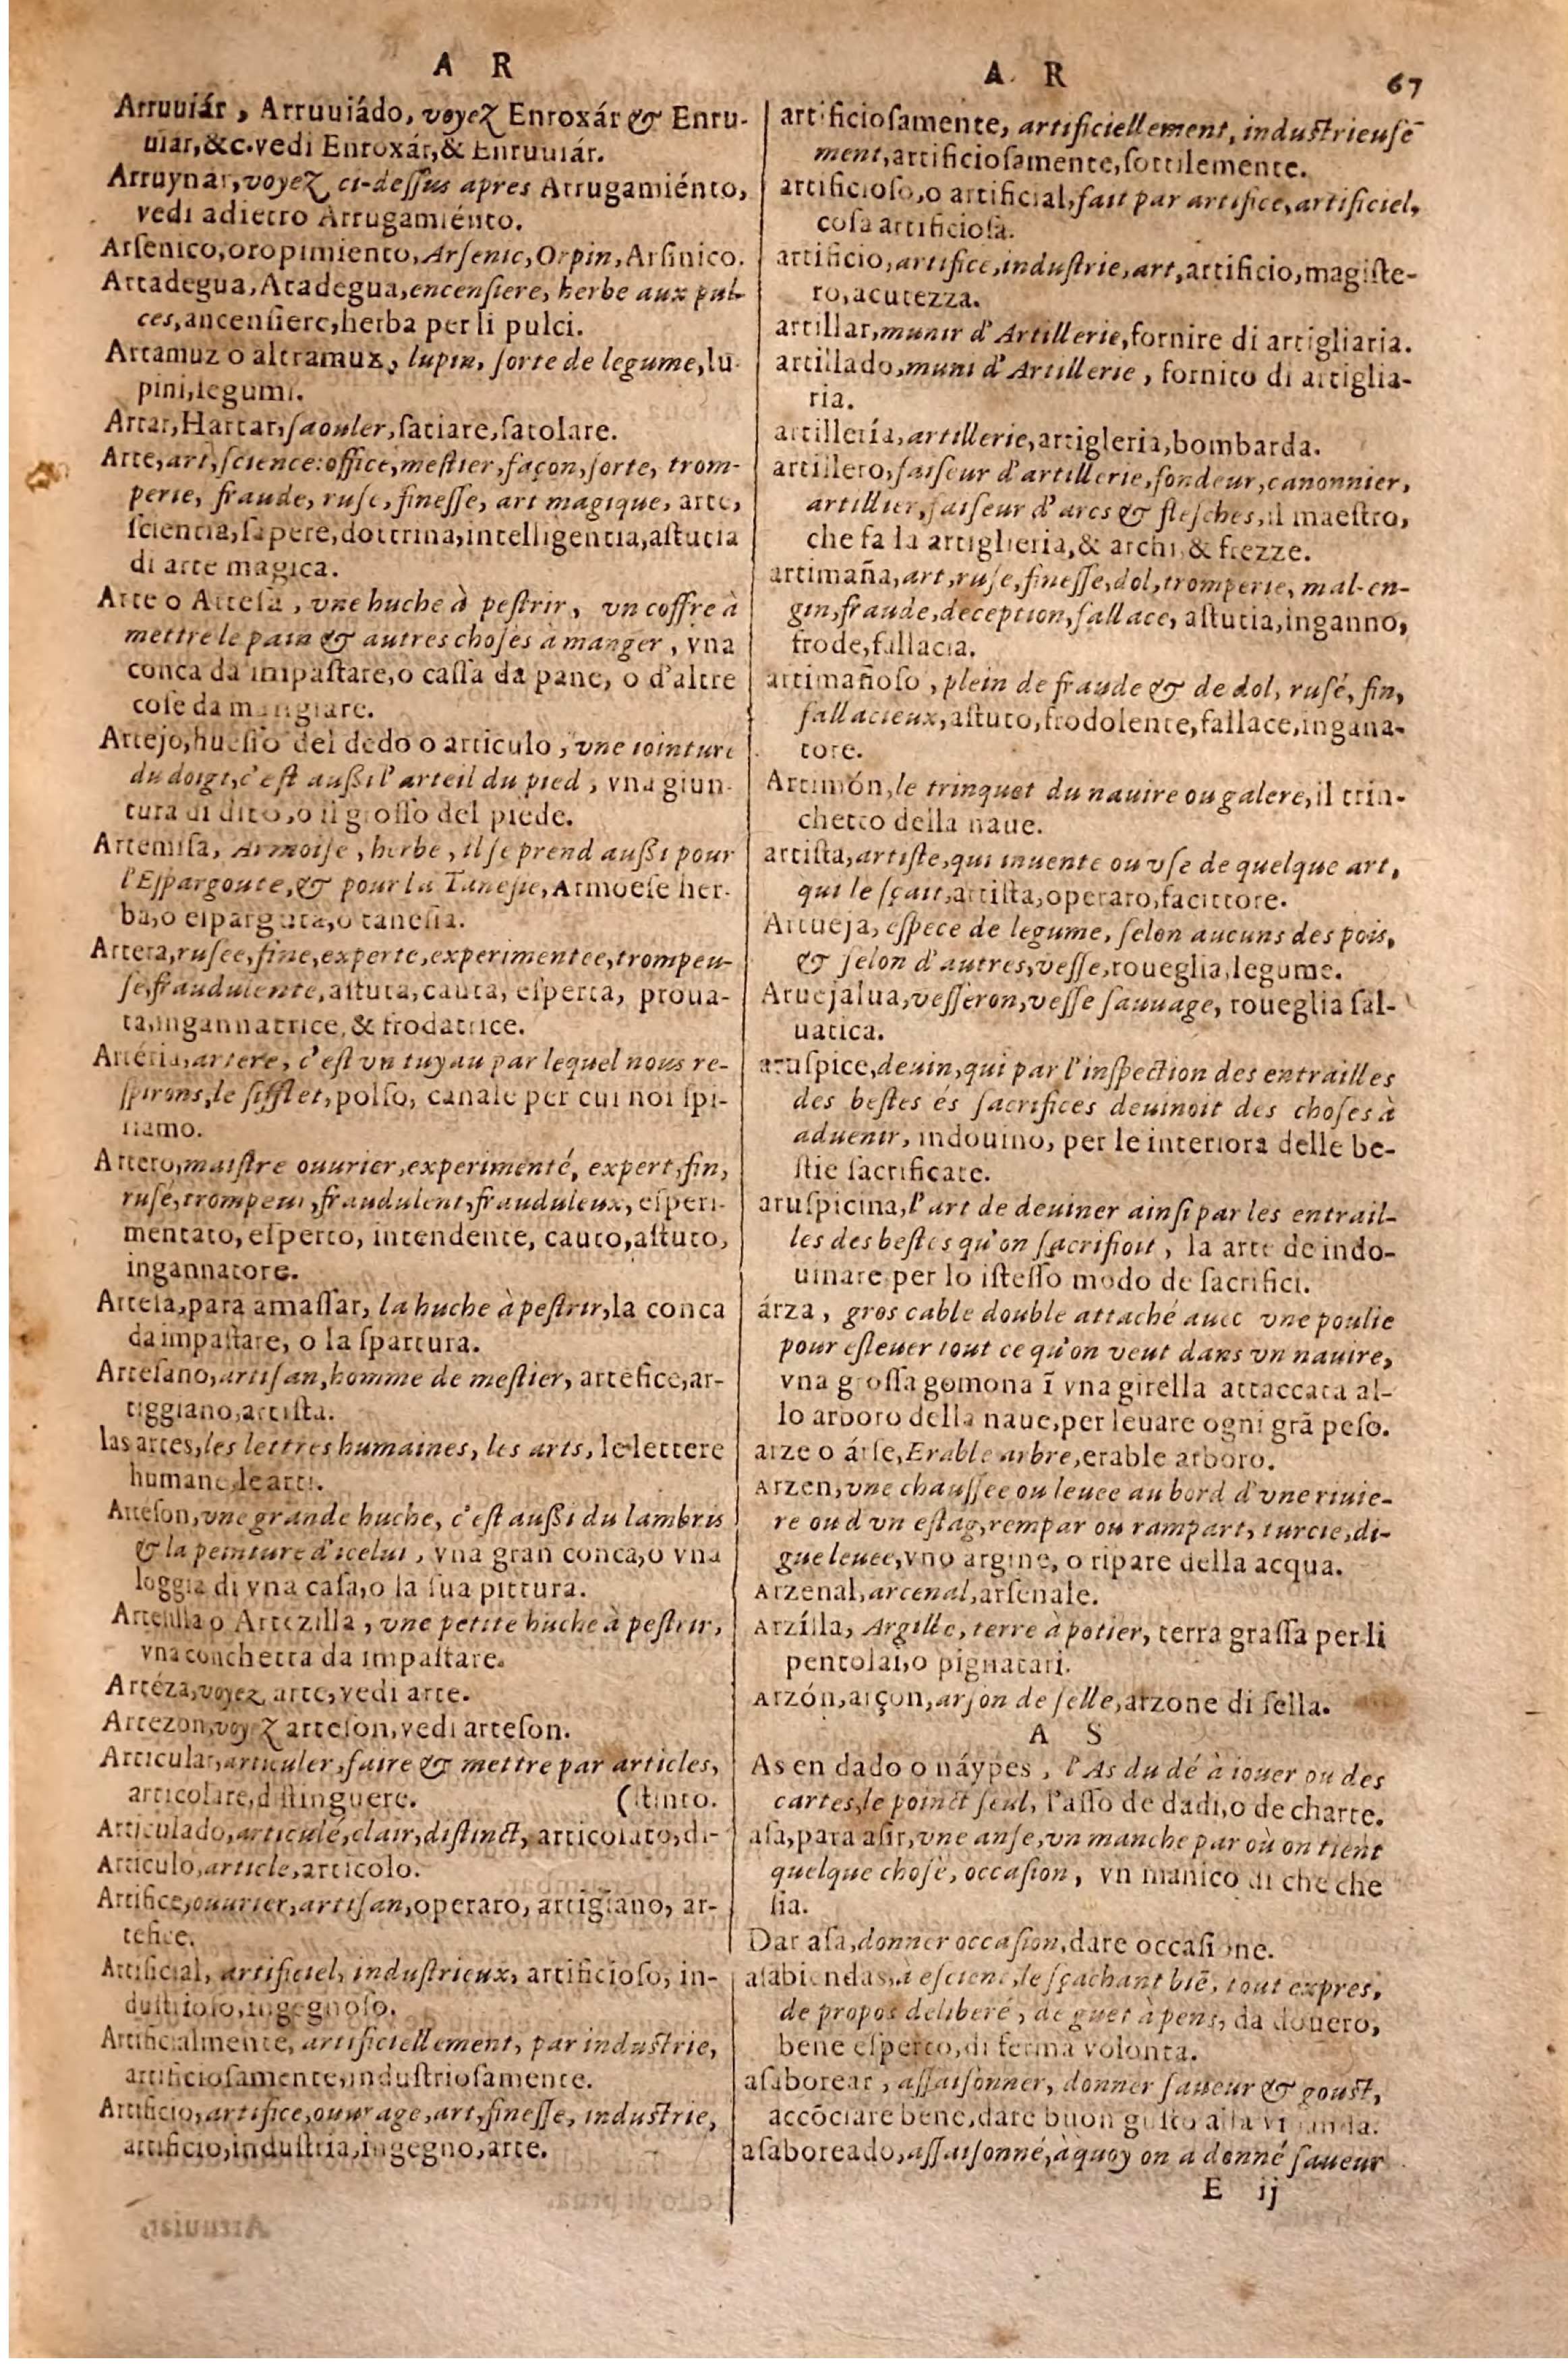 A R
Arruuiár, Arruuiádo, voyeʒ Enroxár & Enru-
uiar,&c.vedi Enroxár,& Enruuiár.
Arruynár,voyeʒ ci-deſſus apres Arrugamiénto,
vedi adietro Arrugamiénto.
Arſenico,oropimiento,Arſenic,Orpin,Arſinico.
Artadegua,Atadegua,encenſiere, herbe aux pul-
ces,ancenſiere,herba per li pulci.
Artamuz o altramuz, lupin, ſorte de legume,lu-
pini,legumi.
Artar,Hartar,ſaouler,ſatiare,ſatolare.
Arte,art,ſcience:office,meſtier,façon,ſorte, trom-
perie, fraude, ruſe, fineſſe, art magique, arte,
ſcientia,ſapere,dottrina,intelligentia,aſtutia
di arte magica.
Arte o Arteſa, vne huche à peſtrir, vn coffre à
mettre le pain & autres choſes à manger, vna
conca da impaſtare,o caſſa da pane, o d'altre
coſe da mangiare.
Artejo,hueſſo del dedo o articulo, vne iointure
du doigt,c'eſt auſſi l'arteil du pied, vna giun-
tura di dito,o il groſſo del piede.
Artemiſa, Armoiſe, herbe, il ſe prend auſſi pour
l'Eſpargoute,& pour la Taneſie,Armoeſe her-
ba,o eſparguta,o taneſia.
Artera,ruſee,fine,experte,experimentee,trompeu-
ſe,fraudulente,aſtuta,cauta, eſperta, proua-
ta,ingannatrice,& frodatrice.
Artéria,artere, c'eſt vn tuyau par lequel nous re-
ſpirons,le ſifflet,polſo, canale per cui noi ſpi-
riamo.
Artero,maiſtre ouurier,experimenté, expert,fin,
ruſé,trompeur,fraudulent,frauduleux, eſperi-
mentato,eſperto, intendente, cauto,aſtuto,
ingannatore.
Arteſa,para amaſſar, la huche à peſtrir,la conca
da impaſtare, o la ſpartura.
Arteſano,artiſan,homme de meſtier, artefice,ar-
tiggiano,artiſta.
las artes,les lettres humaines, les arts, le lettere
humane,le arti.
Arteſon,vne grande huche, c'eſt auſſi du lambris
& la peinture d'icelui, vna gran conca,o vna
loggia di vna caſa,o la ſua pittura.
Arteſilla o Artezilla, vne petite huche à peſtrir,
vna conchetta da impaſtare.
Artéza,voyez arte,vedi arte.
Artezon,voyeʒ arteſon,vedi arteſon.
Articular,articuler,faire & mettre par articles,
articolare,diſtinguere. (ſtinto.
Articulado,articulé,clair,diſtinct, articolato,di-
Articulo,article,articolo.
Artifice,ouurier,artiſan,operaro, artigiano, ar-
tefice.
Artificial, artificiel, induſtrieux, artificioſo, in-
duſtrioſo,ingegnoſo.
Artificialmente, artificiellement, par induſtrie,
artificioſamente,induſtrioſamente.
Artificio,artifice,ouurage,art,fineſſe, induſtrie,
artificio,induſtria,ingegno,arte.
A R 67
artificioſamente, artificiellement, induſtrieuſe-
ment,artificioſamente,ſottilemente.
artificioſo,o artificial,fait par artifice,artificiel,
coſa artificioſa.
artificio,artifice,induſtrie,art,artificio,magiſte-
ro,acutezza.
artillar,munir d'Artillerie,fornire di artigliaria.
artillado,muni d'Artillerie, fornito di artiglia-
ria.
artillería,artillerie,artigleria,bombarda.
artillero,faiſeur d'artillerie,fondeur,canonnier,
artillier,faiſeur d'arcs & fleſches,il maeſtro,
che fa la artiglieria,& archi,& frezze.
artimaña,art,ruſe,fineſſe,dol,tromperie, mal-en-
gin,fraude,deception,fallace, aſtutia,inganno,
frode,fallacia.
artimañoſo, plein de fraude & de dol, ruſé, fin,
fallacieux,aſtuto,frodolente,fallace,ingana-
tore.
Artimón,le trinquet du nauire ou galere,il trin-
chetto della naue.
artiſta,artiſte,qui inuente ou vſe de quelque art,
qui le ſçait,artiſta,operaro,facittore.
Artueja, eſpece de legume, ſelon aucuns des pois,
& ſelon d'autres,veſſe,roueglia,legume.
Aruejalua,veſſeron,veſſe ſauuage, roueglia ſal-
uatica.
aruſpice,deuin,qui par l'inſpection des entrailles
des beſtes és ſacrifices deuinoit des choſes à
aduenir, indouino, per le interiora delle be-
ſtie ſacrificate.
aruſpicina,l'art de deuiner ainſi par les entrail-
les des beſtes qu'on ſacrifioit, la arte de indo-
uinare per lo iſteſſo modo de ſacrifici.
árza, gros cable double attaché auec vne poulie
pour eſleuer tout ce qu'on veut dans vn nauire,
vna groſſa gomona ĩ vna girella attaccata al-
lo arboro della naue,per leuare ogni grã peſo.
arze o árſe,Erable arbre,erable arboro.
Arzen,vne chauſſee ou leuee au bord d'vne riuie-
re ou d'vn eſtag,rempar ou rampart, turcie,di-
gue leuee,vno argine, o ripare della acqua.
Arzenal,arcenal,arſenale.
Arzílla, Argille, terre à potier, terra graſſa per li
pentolai,o pignatari.
Arzón,arçon,arſon de ſelle,arzone di ſella.
A S
As en dado o náypes, l'As du dé à iouer ou des
cartes,le poinct ſeul, l'aſſo de dadi,o de charte.
aſa,para aſir,vne anſe,vn manche par où on tient
quelque choſe, occaſion, vn manico di che che
ſia.
Dar aſa,donner occaſion,dare occaſione.
aſabiendas,à eſcient,le ſçachant biẽ, tout expres,
de propos deliberé, de guet à pens, da douero,
bene eſperto,di ferma volonta.
aſaborear, aſſaiſonner, donner ſaueur & gouſt,
accõciare bene,dare buon guſto alla vianda.
aſaboreado,aſſaiſonné,à quoy on a donné ſaueur
E ij